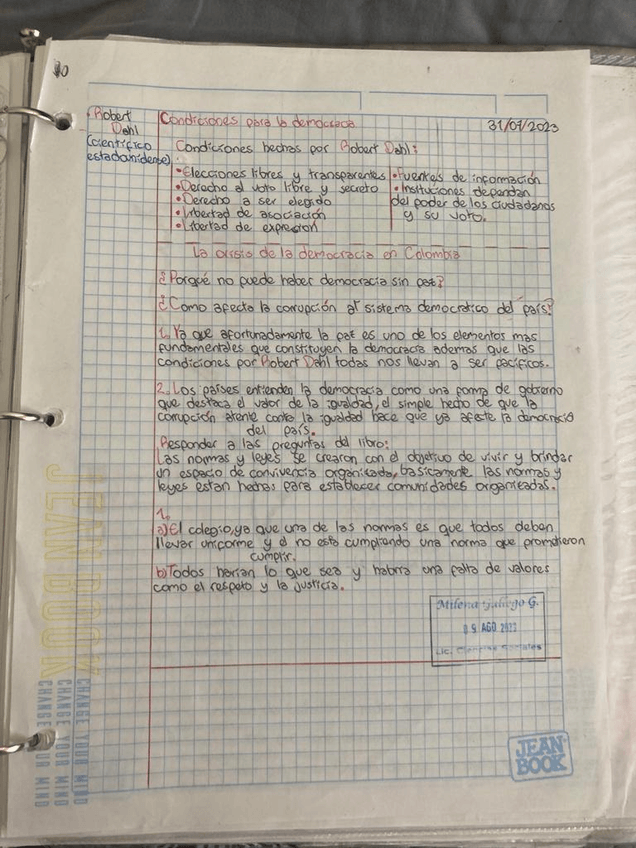 10
• Robert
Dahl
(científico
estadounidense)
Condiciones para la democraca
31/07/2023
Condiciones hechas por Robert Dahl:
• Elecciones libres y transparentes
• Derecho al voto libre y secreto
• Derecho a ser elegido
• Libertad de asociación
• Libertad de expresion
• Fuentes de información
• Instituciones dependan
del poder de los ciudadanos
y su voto.
La crisis de la democracia en Colombia
¿Porqué no puede haber democracia sin paz?
¿Como afecta la corrupción al sistema democratico del país?
1. Ya que afortunadamente la paz es uno de los elementos mas
fundamentales que constituyen la democracia ademas que las
condiciones por Robert Dahl todas nos llevan a ser pacíficos.
2. Los países entienden la democracia como una forma de gobierno
que destaca el valor de la igualdad, el simple hecho de que la
corrupción atente contra la igualdad hace que ya afecte la democracia
del país.
Responder a las preguntas del libro:
Las normas y leyes se crearon con el objetivo de vivir y brindar
un espacio de convivencia organizada, basicamente las normas y
leyes estan hechas para establecer comunidades organizadas.
1.
a) El colegio, ya que una de las normas es que todos deben
llevar uniforme y el no esta cumpliendo una norma que prometieron
cumplir.
b) Todos harían lo que sea y habria una falta de valores
como el respeto y la justicia.
Milena Gallego G.
09 AGO 2023
Lic. Ciencias Sociales
JEAN BOOK
CHANGE YOUR MIND
CHANGE YOUR MIND
CHANGE YOUR MIND
JEAN
BOOK